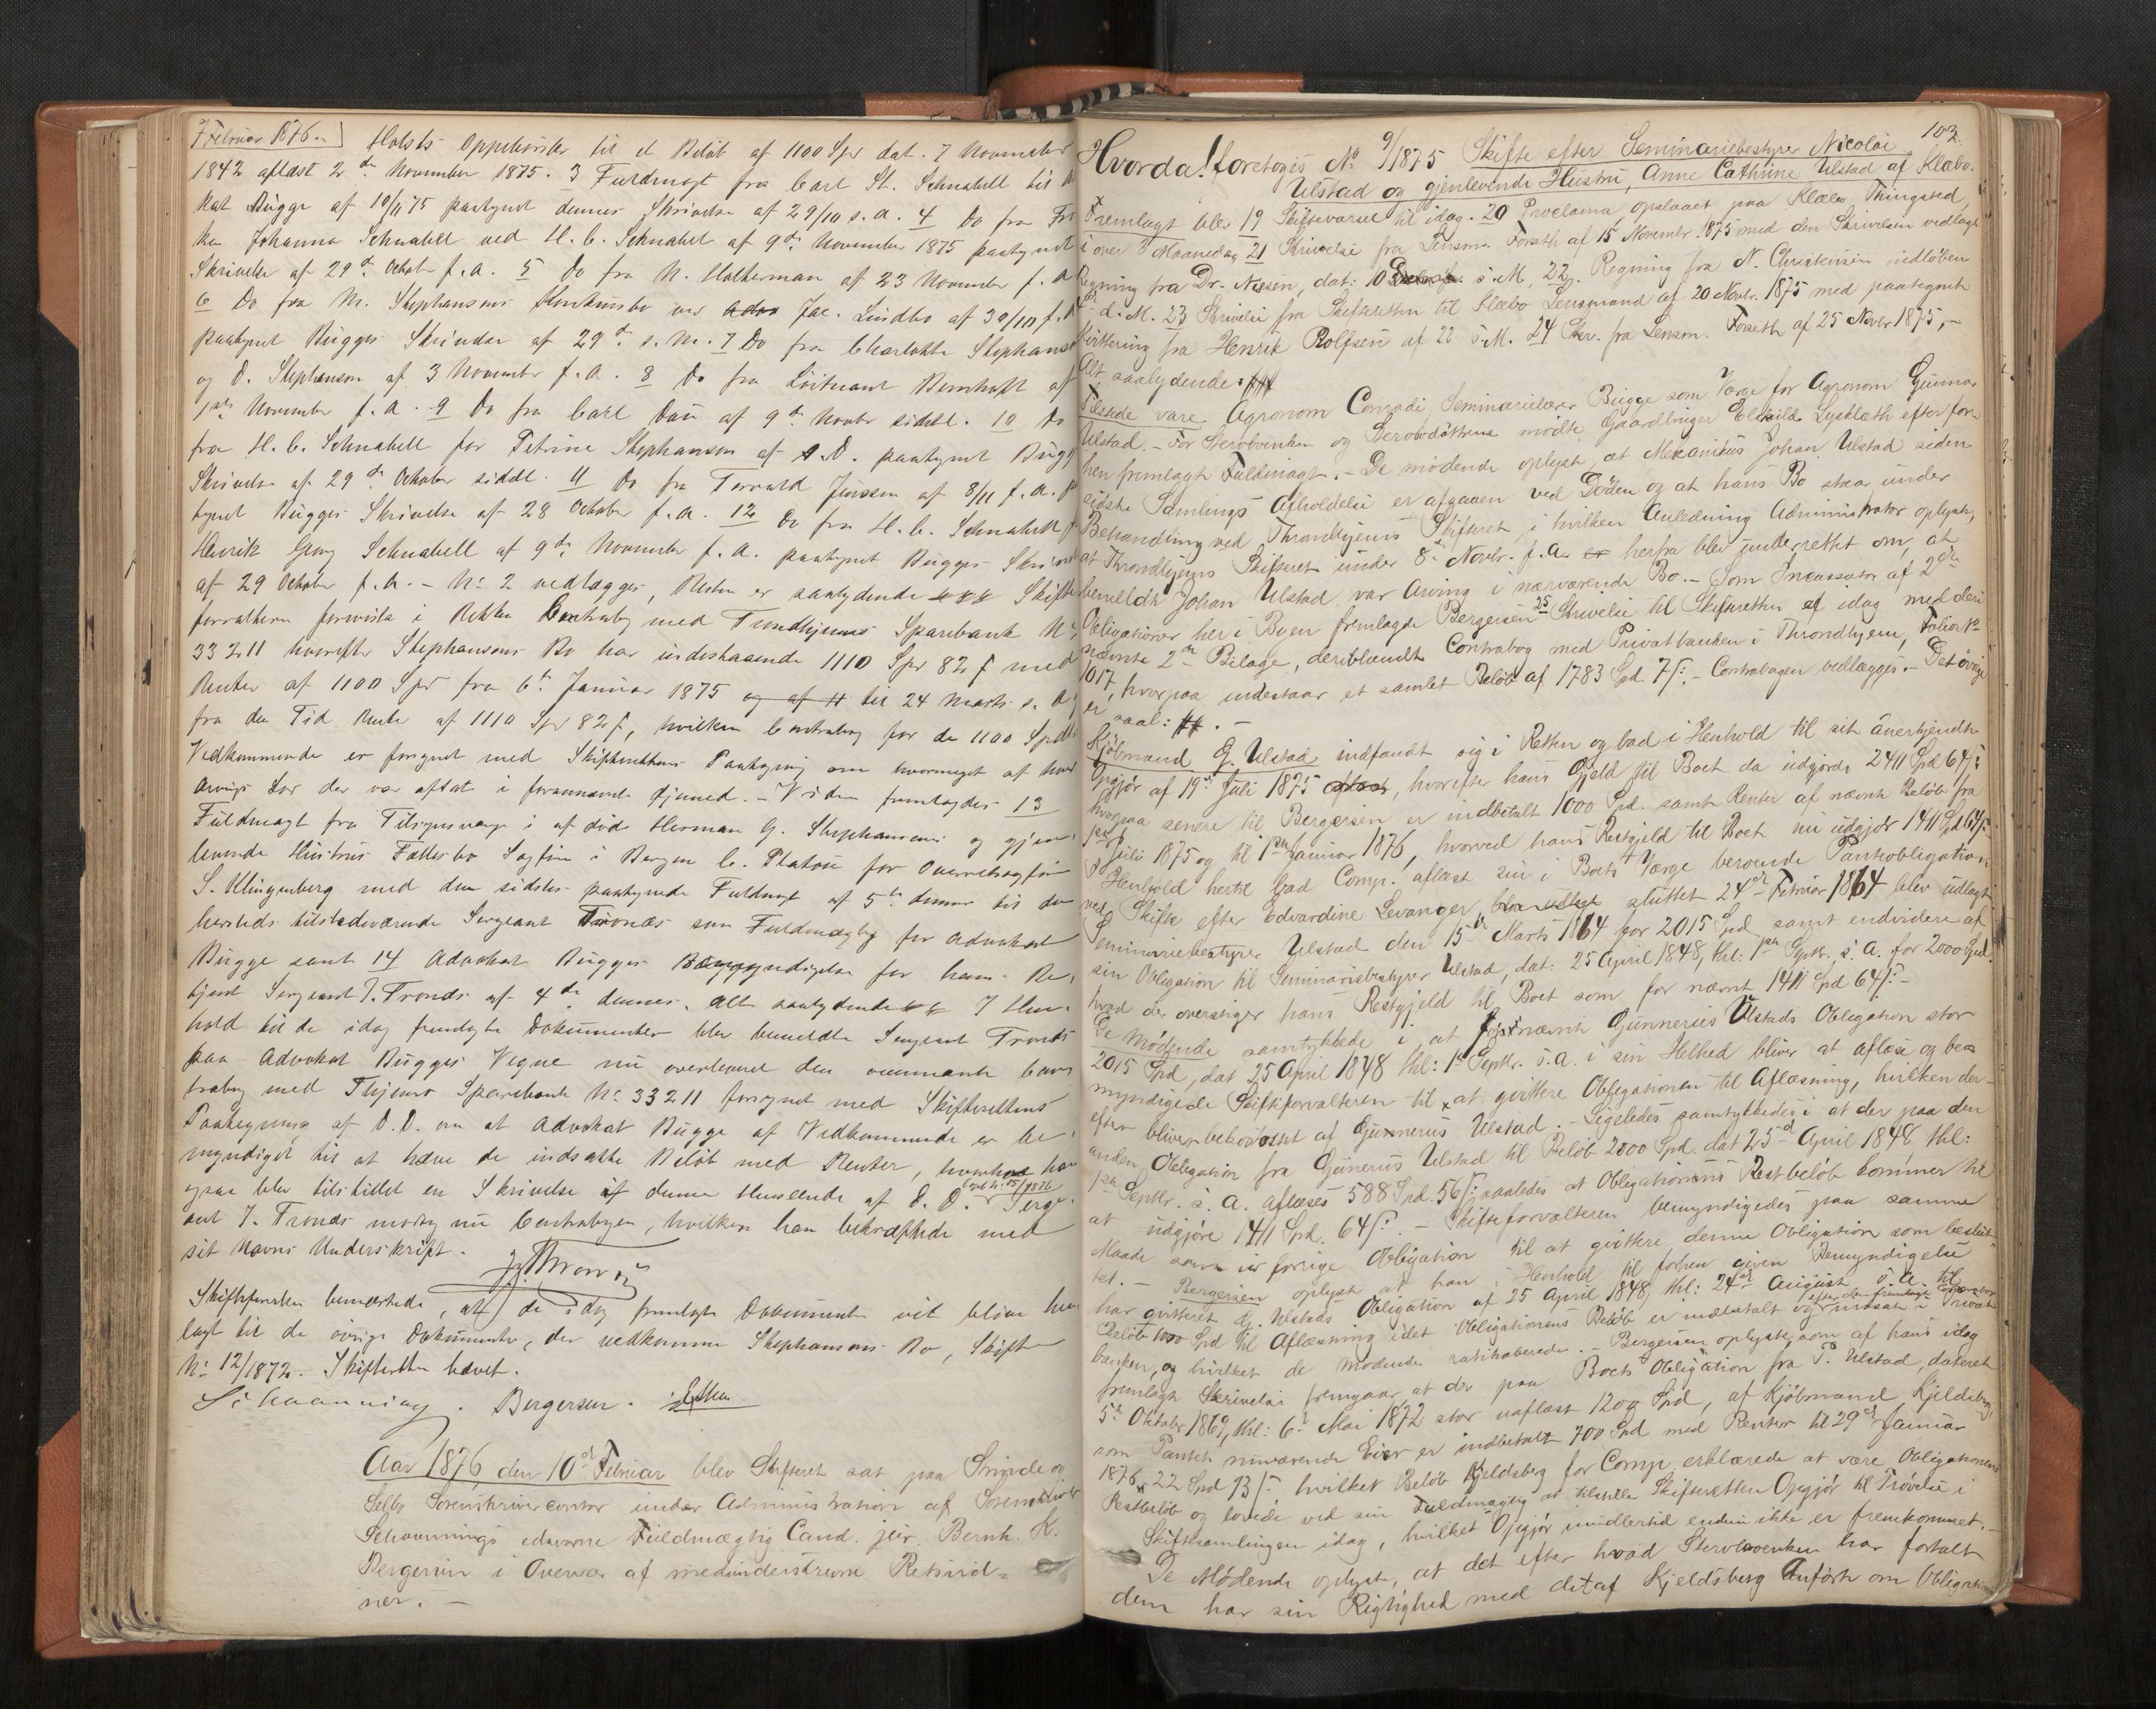 7 Februar 1876.
Holsts Oppebörsler til et Beløb af 1100 Spd dat. 7 November
1842 aflæst 2 de November 1875. 3 Fuldmagt fra Carl St. Schnabell til
kat Bügge af 10/11 75 paategnet dennes Skrivelse af 29/10 s. a. 4 Do fra
ken Johanna Schnabell ved H. C. Schnabell af 9de November 1875 paategnet
Skrivelse af 29de Octobr f. a. 5 Do fra N. Halterman af 23 November f. a
6 Do fra M. Stephansons Enke ved Jac. Lindbo af 30/10 f. a
paategnet Bügges Skrivelse af 29de s. M. 7 Do fra Charlotte Stephanson
og D. Stephanson af 3 November f. a. 8 Do fra Löitnant Bernhoft af
1ste November f. a. 9 Do fra Carl Daü af 9de Novbr sidstl. 10 Do
fra H. C. Schnabell for Petrine Stephanson af S. D. paategnet Bügges
Skrivelse af 29de October sidstl. 11 Do fra Torvald Jürssen af 8/11 f. a.
tegnet Bügges Skrivelse af 28 October f. a. 12 Do fra H. C. Schnabell
Henrik Georg Schnabell af 9de November f. a. paategnet Bügges Skrivelse
af 29 October f. a. – No 2 vedlægges, Resten er saalydende Skifte
forvalteren foreviste i Retten Contrabog med Trondhjems Sparebank No
33211 hvorefter Stephansons Bo har indestaaende 1110 Spd 82 ß med
Renter af 1100 Spd fra 6te Januar 1875 og af til 24 Marts s. a.
fra den Tid Rente af 1110 Spd 82 ß, hvilken Contrabog for de 1100 Spd
Vedkommende er forsynet med Skifterettens Paategning om hvormeget af hver
Arvings Lod der var afsat i forannævnte Öjemed. – Videre fremlagdes 13
Fuldmagt fra Tilsynsværge i afdöde Herman G. Stephansens og gjen-
levende Hustrus Fællesbo Sagförer i Bergen C. Platou for Overretssagförer
S. Klingenberg med den sidstes paategnede Fuldmagt af 5te dennes til den
herteds tilstedværende Sergeant Tronæs som Fuldmægtig for Advokat
Bügge samt 14 Advokat Bügges Bemyndigelse for ham. Be-
tjent Sergeant J. Tronds af 4de dennes. Alt saalydende I Hen-
hold til de idag fremlagte Dokumenter blev bemeldte Sergeant Tronds
paa Advokat Bügges Vegne nu overleveret den ommeldte Con-
trabog med Thjems Sparebank No 33211 forsynet med Skifterettens
Paategning af D. D. om at Advokat Bügge af Vedkommende er be-
myndiget til at hæve de indsatte Beløb med Renter,
ogsaa blev tilstillet en Skrivelse af denne Henseende af D. D. Serge-
ant J. Tronds modtog nu Contrabogen, hvilken han bekræftede med
sit Navns Underskrift.
Skifteforvalteren bemærkede, at de idag fremlagte Dokumenter vil blive hen-
lagt til de övrige Dokumenter, der vedkomme Stephansons Bo, Skifte
No 12/1872. Skifteretten hævet.
Schaanning. Bergersen.
Aar 1876 den 10de Februar blev Skifteret sat paa Strinde og
Selbo Sorenskrivercontor under Administration af Sorenskriver
Schaannings edsvorne Fuldmægtig Cand. jur. Bernh. K.
Bergersen i Overvær af medunderskrevne Retsvid-
ner. –
103.
Hvorda! foretoges No 9/1875 Skifte efter Seminariebestyrer Nicolai
Ulstad og gjenlevende Hustru, Anne Cathrine Ulstad af Klæbo.
Fremlagt blev 19 Skiftevarsel til idag. 20 Proclama opslaaet paa Klæbo Thingsted,
i over 3 Maaneder, 21 Skrivelse fra Lensm. Forseth af 15 Novembr. 1875 med den Skrivelsen vedlagte
Regning fra Dr. Nissen, dat: 10 s. M, 22. Regning fra N. Christensen indløben
d. M. 23 Skrivelse fra Skifteretten til Klæbo Lensmand af 20 Novbr. 1875 med paategnet
Kvittering fra Henrik Rolfsen af 22 s. M. 24 Skr. fra Lensm. Forseth af 25 Novbr 1875, –
Alt saalydende:
Tilstede vare Agronom Conradi, Seminarielærer Bugge som Værge for Agronom Gunnar
Ulstad. – For Stervboenken og Stervbodöttrene mödte Gaardbruger Lysklæth efter for-
hen fremlagt Fuldmagt. – De mödende oplyste, at Mekanikus Johan Ulstad siden
sidste Samlings Afholdelse er afgaaen ved Döden og at hans Bo staar under
Behandling ved Throndhjems Skifteret, i hvilken Anledning Administrator oplyste,
at Throndhjems Skifteret under 8de Novbr. f. a. herfra blev underrettet om, at
bemeldte Johan Ulstad var Arving i nærværende Bo. – Som Incassator af 2de
Obligationer her i Byen fremlagde Bergersen 25 Skrivelse til Skifteretten af idag med deri
nævnte 2de Bilage, deriblandt Contrabog med Privatbanken i Throndhjem, Folio No
1017, hvorpaa indestaar et samlet Beløb af 1783 Spd. 7 ß. – Contrabogen vedlægges. – Det övrige
er saal: –
Kjöbmand G. Ulstad indfandt sig i Retten og bad i Henhold til sit anerkjendte
Opgjör af 19de Juli 1875, hvorefter hans Gjeld til Boet da udgjorde 2411 Spd 64 ß:
hvorpaa senere til Bergersen er indbetalt 1000 Spd. samt Renter af nævnte Beløb fra
1ste Juli 1875 og til 1ste Januar 1876, hvorved hans Restgjeld til Boet nu udgjör 1411 Spd 64 ß.
I Henhold hertil bad Comp. aflæst sin i Boets Værge beroende Panteobligation
ved Skifte efter Edvardine Levanger sluttet 24de Februar 1864 blev udlagt
Seminariebestyrer Ulstad den 15de Marts 1864 for 2015 Spd samt endvidere af
sin Obligation til Seminariebestyrer Ulstad, dat: 25 April 1848, thl: 1ste Septbr. s. a. for 2000 Spd.
hvad der overstiger hans Restgjeld til Boet som for nævnt 1411 Spd 64 ß: –
De Mödende samtykkede i, at förstnævnte Gunnerius Ulstads Obligation stor
2015 Spd, dat 25 April 1848 thl: 1ste Septbr. s. a. i sin Helhed bliver at aflæse og be-
myndigede Skifteforvalteren til at qvittere Obligationen til Aflæsning, hvilken der-
efter bliver besörget af Gunnerus Ulstad. – Ligeledes samtykkedes i at der paa den
anden Obligation fra Gunerus Ulstad til Beløb 2000 Spd. dat 25de April 1848, thl:
1ste Septbr. s. a. aflæses 588 Spd. 56 ß: saaledes at Obligationens Restbeløb kommer til
at udgjöre 1411 Spd. 64 ß: – Skifteforvalteren bemyndigedes paa samme
Maade som for forrige Obligation til at qvittere denne Obligation som beslut-
tet. – Bergersen oplyste at han i Henhold til forhen given Bemyndigelse
har qvitteret G. Ulstads Obligation af 25 April 1848, thl: 24de August s. a. til
Beløb 1000 Spd til Aflæsning idet Obligationens Beløb er indbetalt og indsat i Privat-
banken, og hvilket de Mödende ratihaberede. – Bergersen oplyste, som af hans idag
fremlagte Skrivelse fremgaar, at der paa Boets Obligation fra P. Ulstad, dateret
5te Oktober 1869, thl: 6te Mai 1872 stor uaflæst 1200 Spd, af Kjöbmand Kjeldsberg,
som Pantets nuværende Eier er indbetalt 700 Spd med Renter til 29de Januar
1876, 22 Spd 73 ß:, hvilket Beløb Kjeldsberg for Comp. erklærede at være Obligationens
Restbeløb og lovede ved sin Fuldmægtig at tilstille Skifteretten Opgjör til Prövelse i
Skiftesamlingen idag, hvilket Opgjör imidlertid endnu ikke er fremkommet. –
De Mödende oplyste, at det efter hvad Stervboenken har fortalt
dem har sin Rigtighed med det af Kjeldsberg anförte om Obligati-